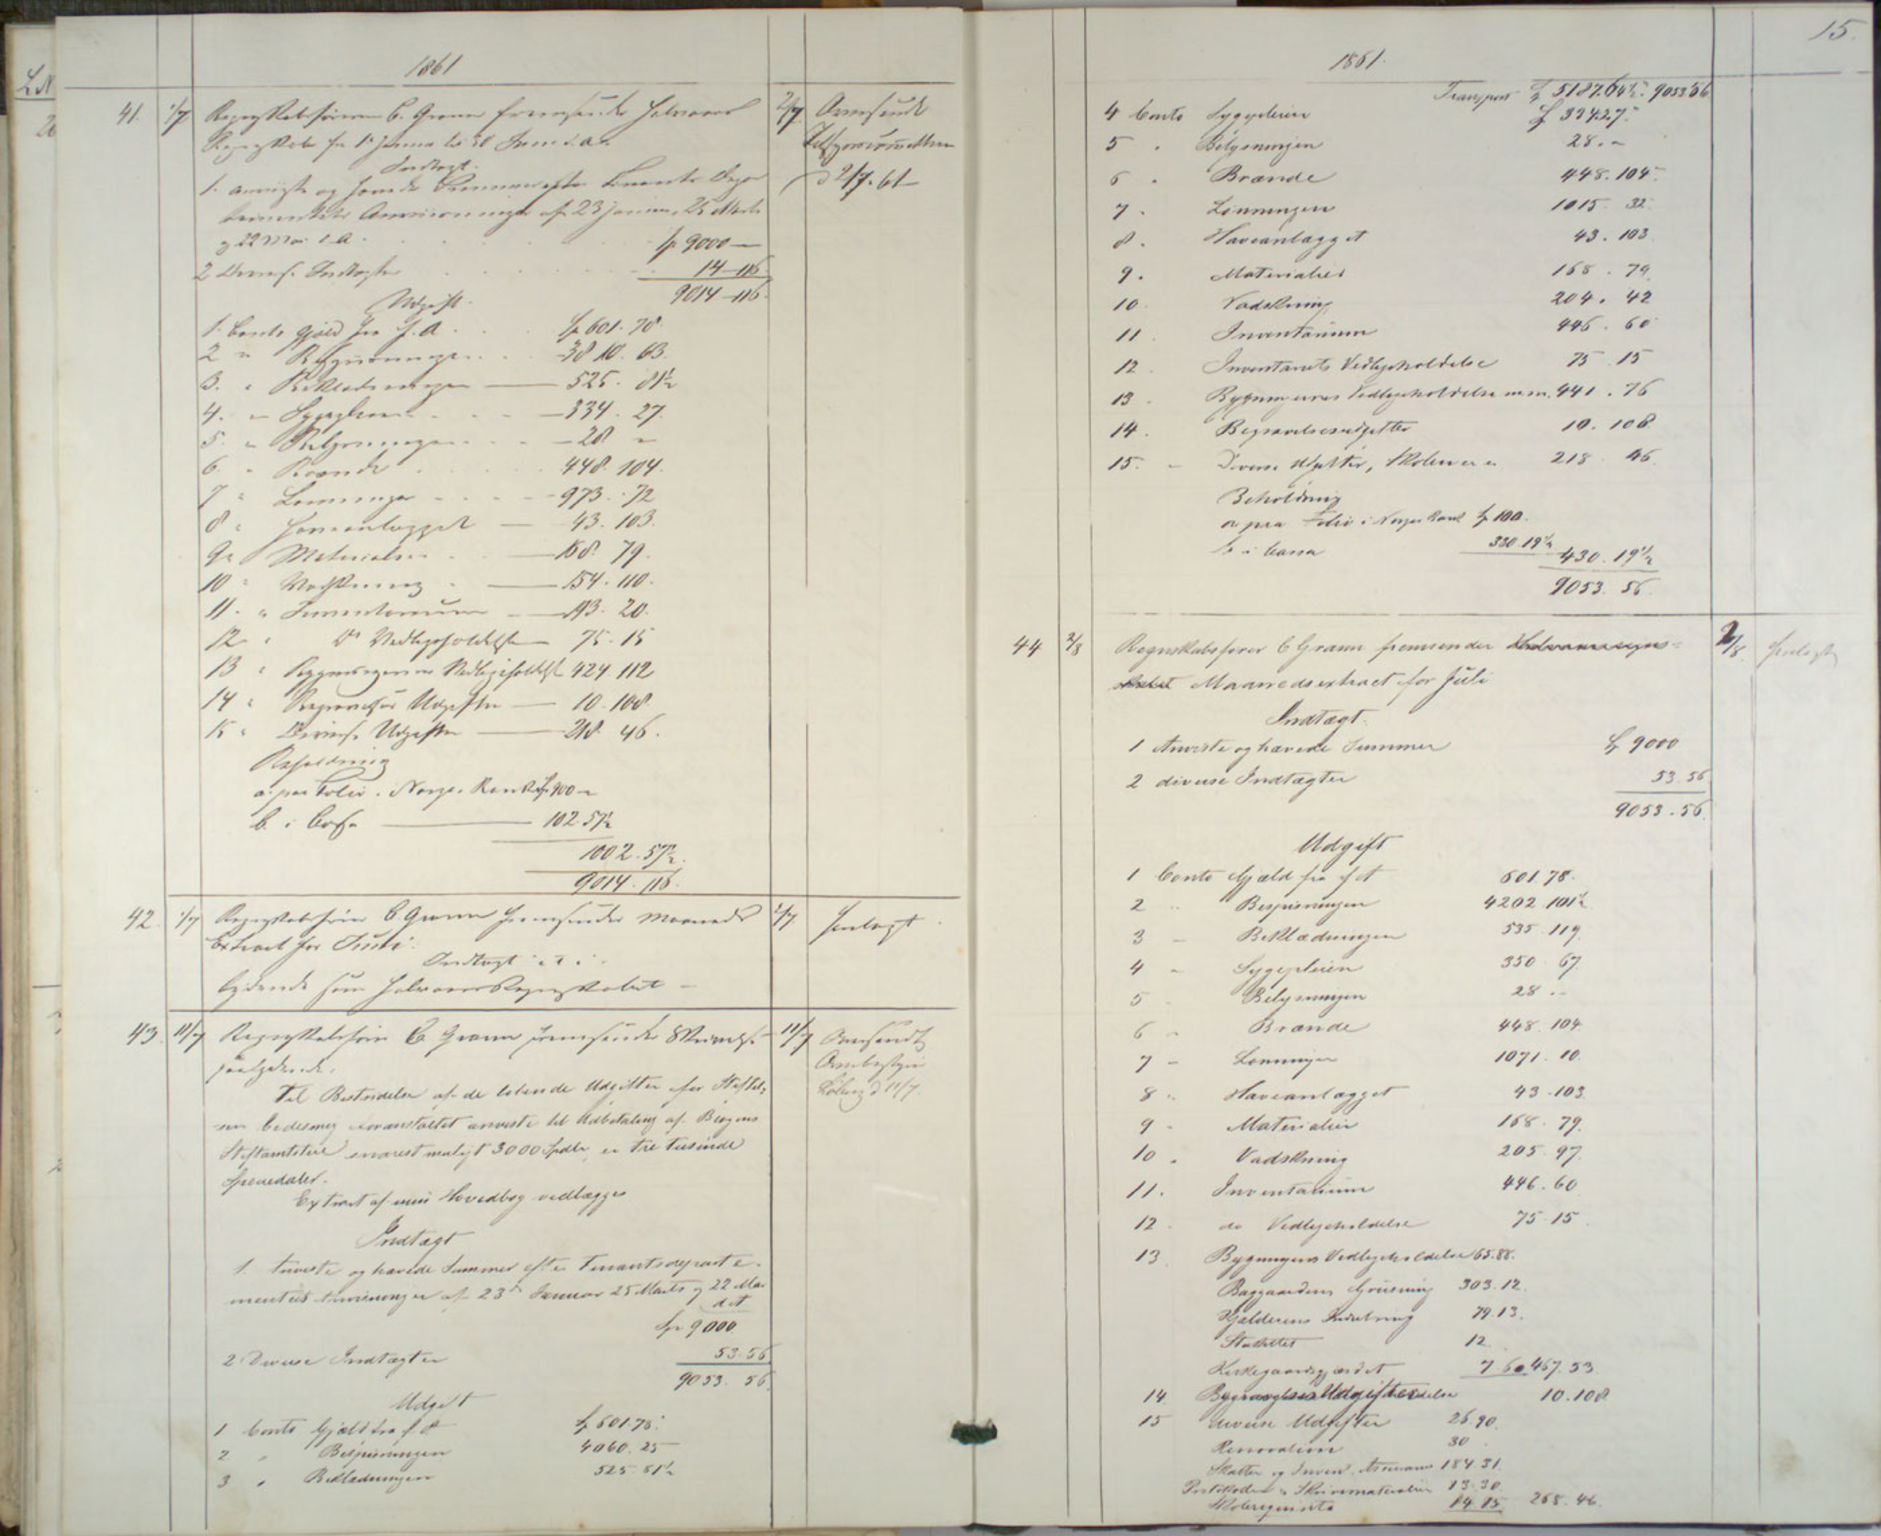 1861
41. 1/7 Regnskabsfører C. Grann fremsender Halvaars 2/7 Oversendt
Regnskab fra 1e Januar til 30 Juni d.a.
Indtægt. d 2/7. 61
1. anviste og hævede Summer efter Finants Depar
tementets Anvisninger af 23 Januar, 25 Marts
og 22 Mai d.A. Sp 9000 —
2 Diverse Indtægter 14 — 116
9014 — 116.
Udgift.
1. Conto Gjæld fra f. A. Sp 601. 78.
2 " Bespisningen 3810. 63.
3. " Beklædningen — 525. 81½
4. " Sygepleien — 334. 27.
5. " Belysningen — 28 "
6. " Brænde 448. 104.
7 " Lønninger 973. 72
8 " Haveanlægget — 43. 103.
9 " Materialier — 168. 79.
10 " Vadskning — 154. 110.
11. " Inventarium — 193. 20.
12 " Do Vedligeholdelse — 75. 15
13 " Bygningernes Vedligeholdelse 424. 112
14 " Begravelses Udgifter — 10. 108.
15 " Diverse Udgifter — 218. 46.
Beholdning
a. paa Folio i Norges Bank Sp 900 "
b. i Cassa — 102. 57½
1002. 57½.
9014. 116.
42. 1/7 Regnskabsfører C Grann fremsender Maaneds 2/7 henlagt
Extract for Juni.
Indtægt
lydende som Halvaars Regnskabet —
43. 11/7 Regnskabsfører C Grann fremsender Skrivelse 11/7 Oversendt
saalydende.
Til Bestridelse af de løbende Udgifter for Stiftel-
sen bedes mig foranstaltet anviste til Udbetaling af Bergens
Stiftamtstue snarest muligt 3000 Spdlr er tre tusinde
Speciedaler.
Extract af min Hovedbog vedlægges
Indtægt
1. Anviste og hævede Summer efter Finantsdeparte-
mentets Anvisninger af 23d Januar 25 Marts og 22 Mai
d.A
Sp 9000
2 Diverse Indtægter 53. 56
9053. 56.
Udgift
1 Conto Gjæld fra f A Sp 601. 78.
2 " Bespisningen 4060. 25
3 " Beklædningen 525. 81½
15.
1861.
Transport Sp 5187. 64½. 9053 56
4 Conto Sygepleien Sp 394. 27.
5 " Belysningen 28. "
6 " Brænde 448. 104.
7 " Lønningen 1015. 32.
8 " Haveanlægget 43. 103.
9. " Materialier 168. 79.
10 " Vadskning 204. 42
11 " Inventarium 446. 60
12 " Inventariets Vedligeholdelse 75. 15
13 " Bygningernes Vedligeholdelse m.m. 441. 76
14. " Begravelsesudgifter 10. 108
15. " Diverse Udgifter, 218. 46.
Beholdning
a paa Folio i Norges Bank Sp 100.
b i Cassa 330. 19½ 430. 19½
9053. 56.
44 2/8 Regnskabsfører C Grann fremsender 2/8. henlagt
Maanedsextract for Juli
Indtægt.
1 Anviste og hævede Summer Sp 9000
2 diverse Indtægter 53 56
9053. 56.
Udgift
1 Conto Gjæld fra f A 601. 78.
2 " Bespisningen 4202. 101½
3 " Beklædningen 535. 119.
4 " Sygepleien 350. 67
5 " Belysningen 28. "
6 " Brænde 448. 104
7 " Lønninger 1071. 10.
8 " Haveanlægget 43. 103.
9 " Materialier 168. 79.
10 " Vadskning 205. 97.
11. " Inventarium 446. 60
12 " do Vedligeholdelse 75. 15.
13 Bygningens Vedligeholdelse 65. 88.
Baggaardens Gruusning 303. 12.
Kjelderens Indretning 79. 13.
Stakittet 12
Kirkegaardsgjærdet 7. 60 467. 53.
14 Begravelses Udgifter 10. 108
15 diverse Udgifter 26. 90.
Renovation 30
Skatter og Assurance 184. 31.
Skrivematerialier 13. 30.
Skolerequisita 14. 15. 268. 46.